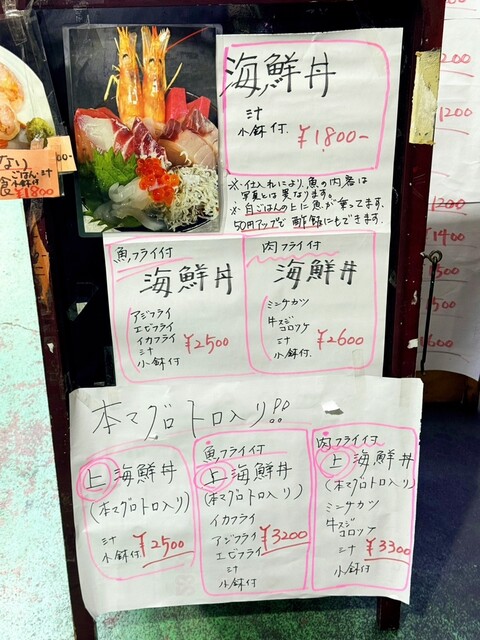 海鮮丼
汁
小鉢付.
¥1800-
※仕入れにより、魚の内容は
写真とは異なります.
※白ごはんの上に魚が乗ってます.
50円アップで酢飯にもできます.
魚フライ付
海鮮丼
アジフライ
エビフライ
イカフライ
汁
小鉢付
¥2500
肉フライ付
海鮮丼
ミンチカツ
牛スジ
コロッケ
汁
小鉢付.
¥2600
本マグロトロ入り!!
上 海鮮丼
(本マグロトロ入り)
汁
小鉢付
¥2500
魚フライ付
上 海鮮丼
(本マグロトロ入り)
イカフライ
アジフライ
エビフライ
汁
小鉢付
¥3200
肉フライ付
上 海鮮丼
(本マグロトロ入り)
ミンチカツ
牛スジ
コロッケ
汁
小鉢付
¥3300
ない
ごはん・汁
小鉢付
¥1800
1200
1200
¥1400